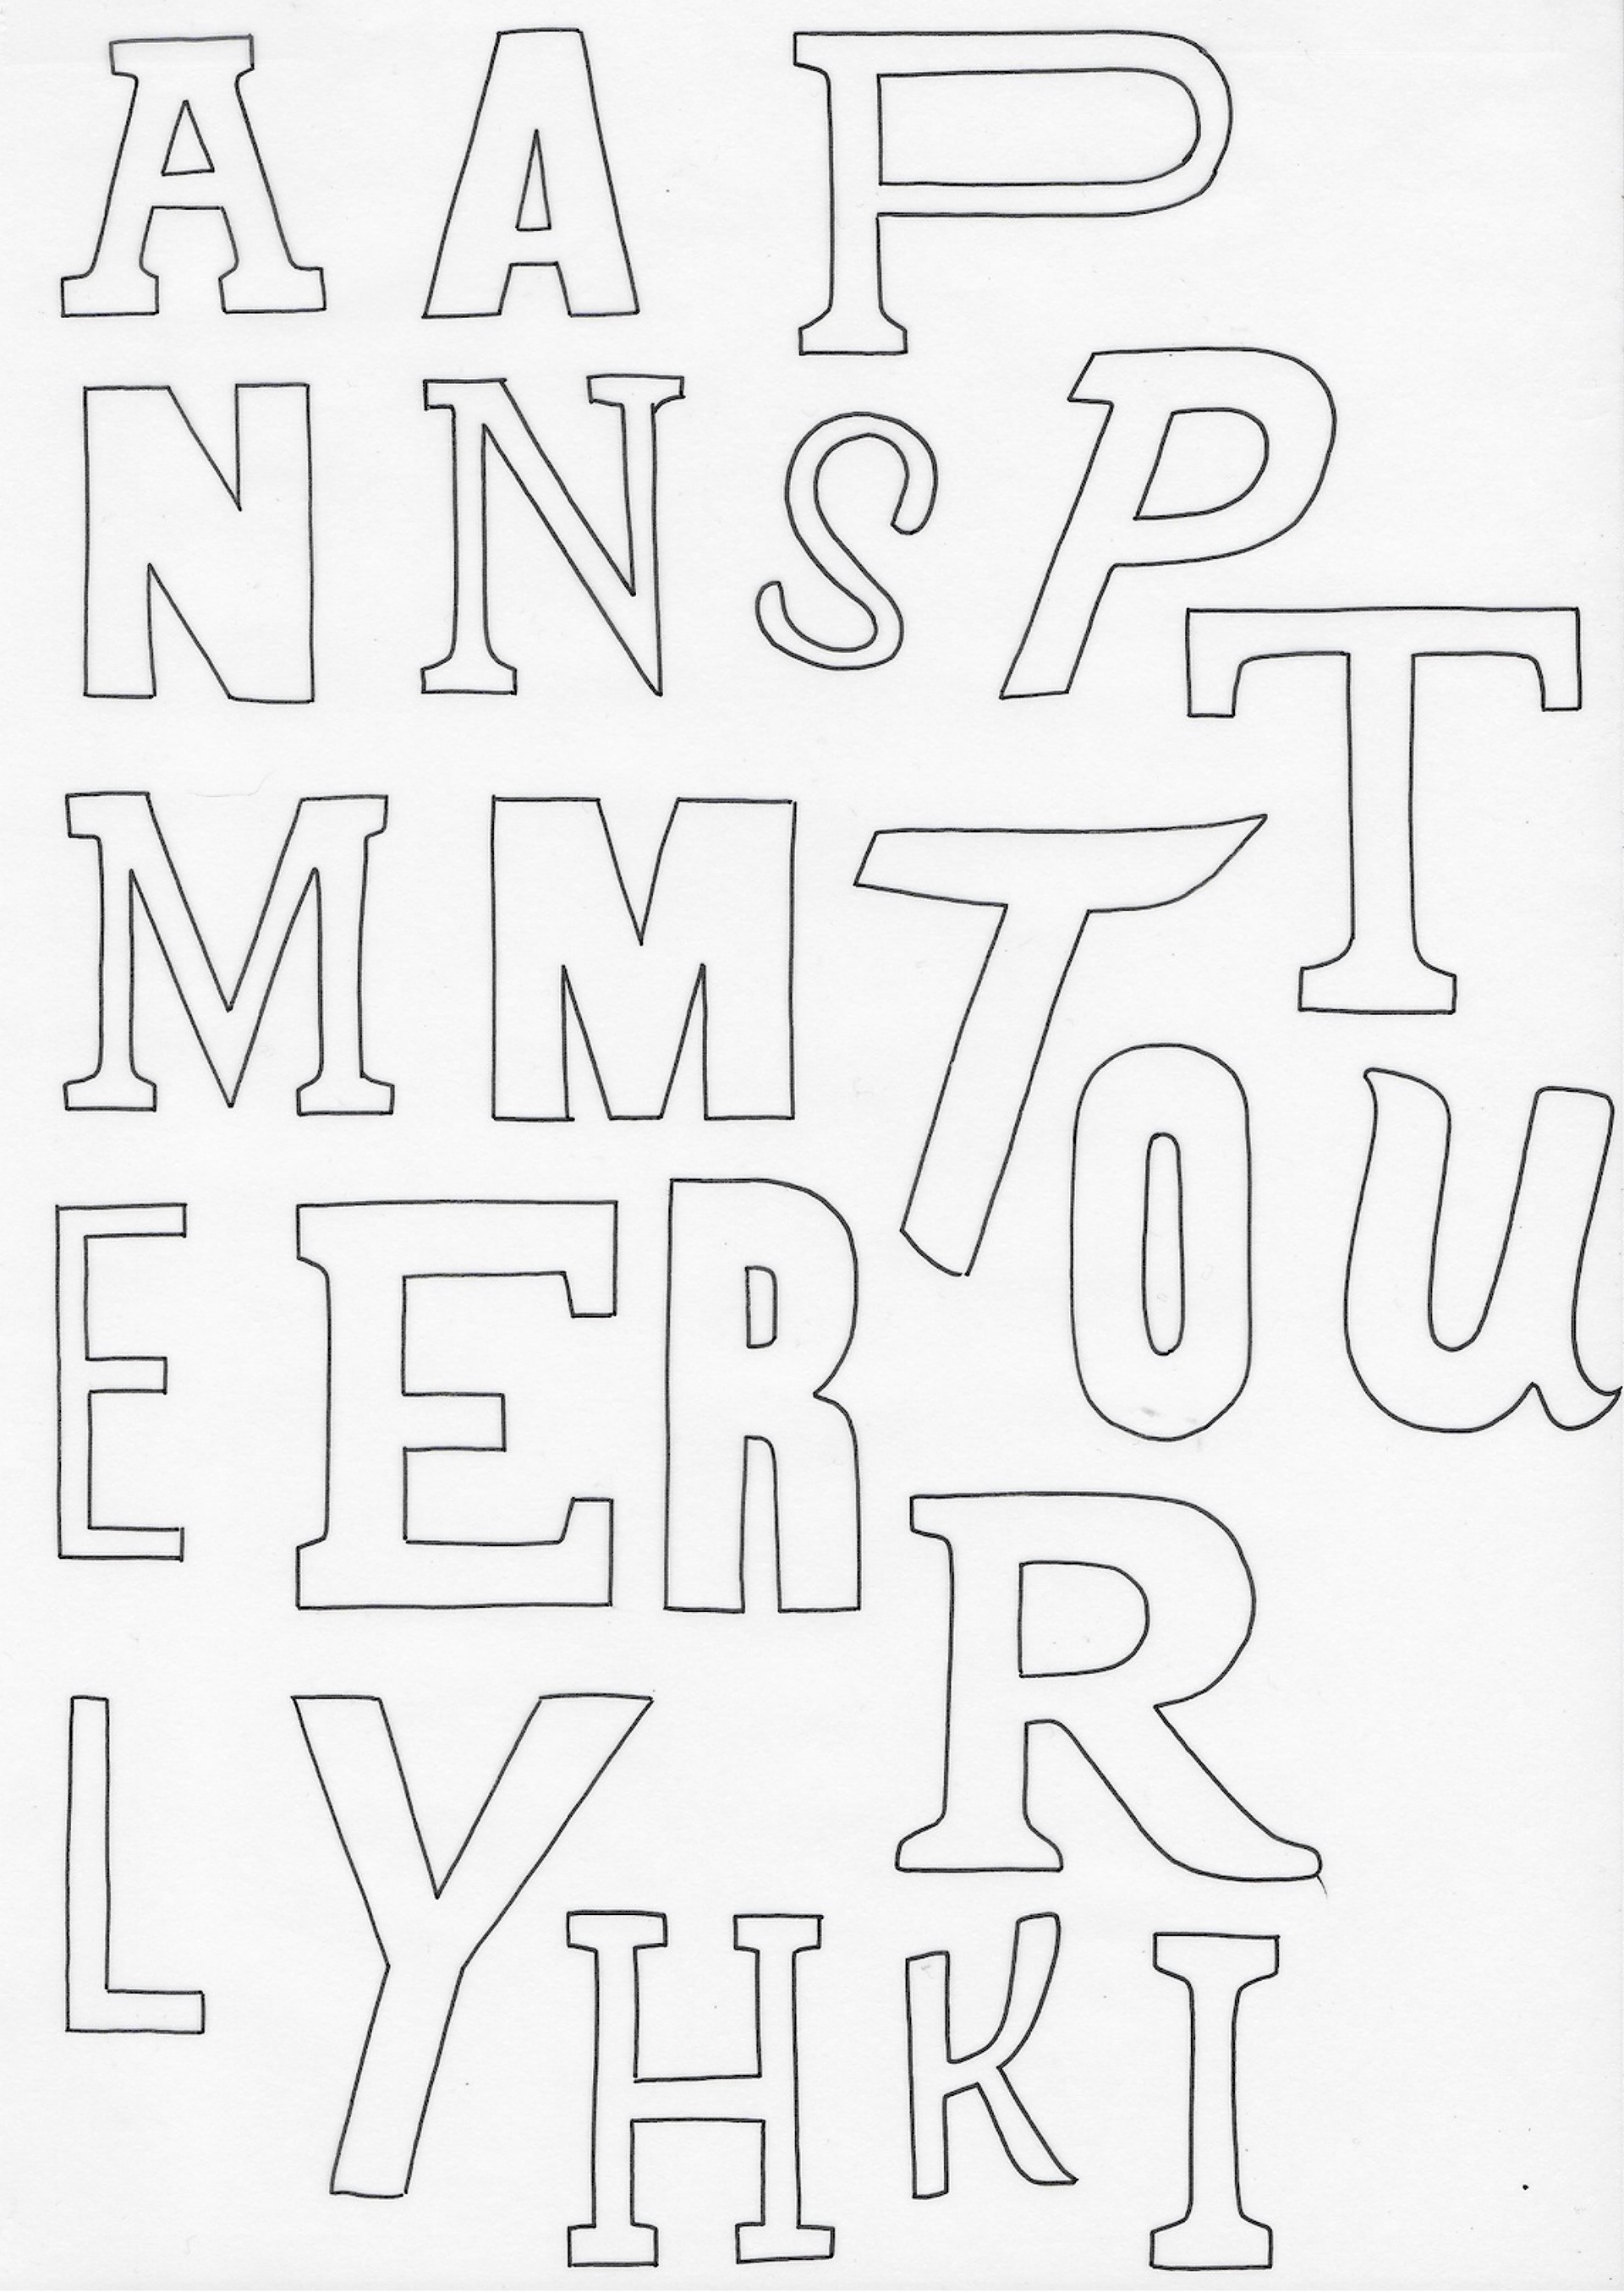 A A P
N N S P
T
M M T
O U
E E R
R
L Y
H K I